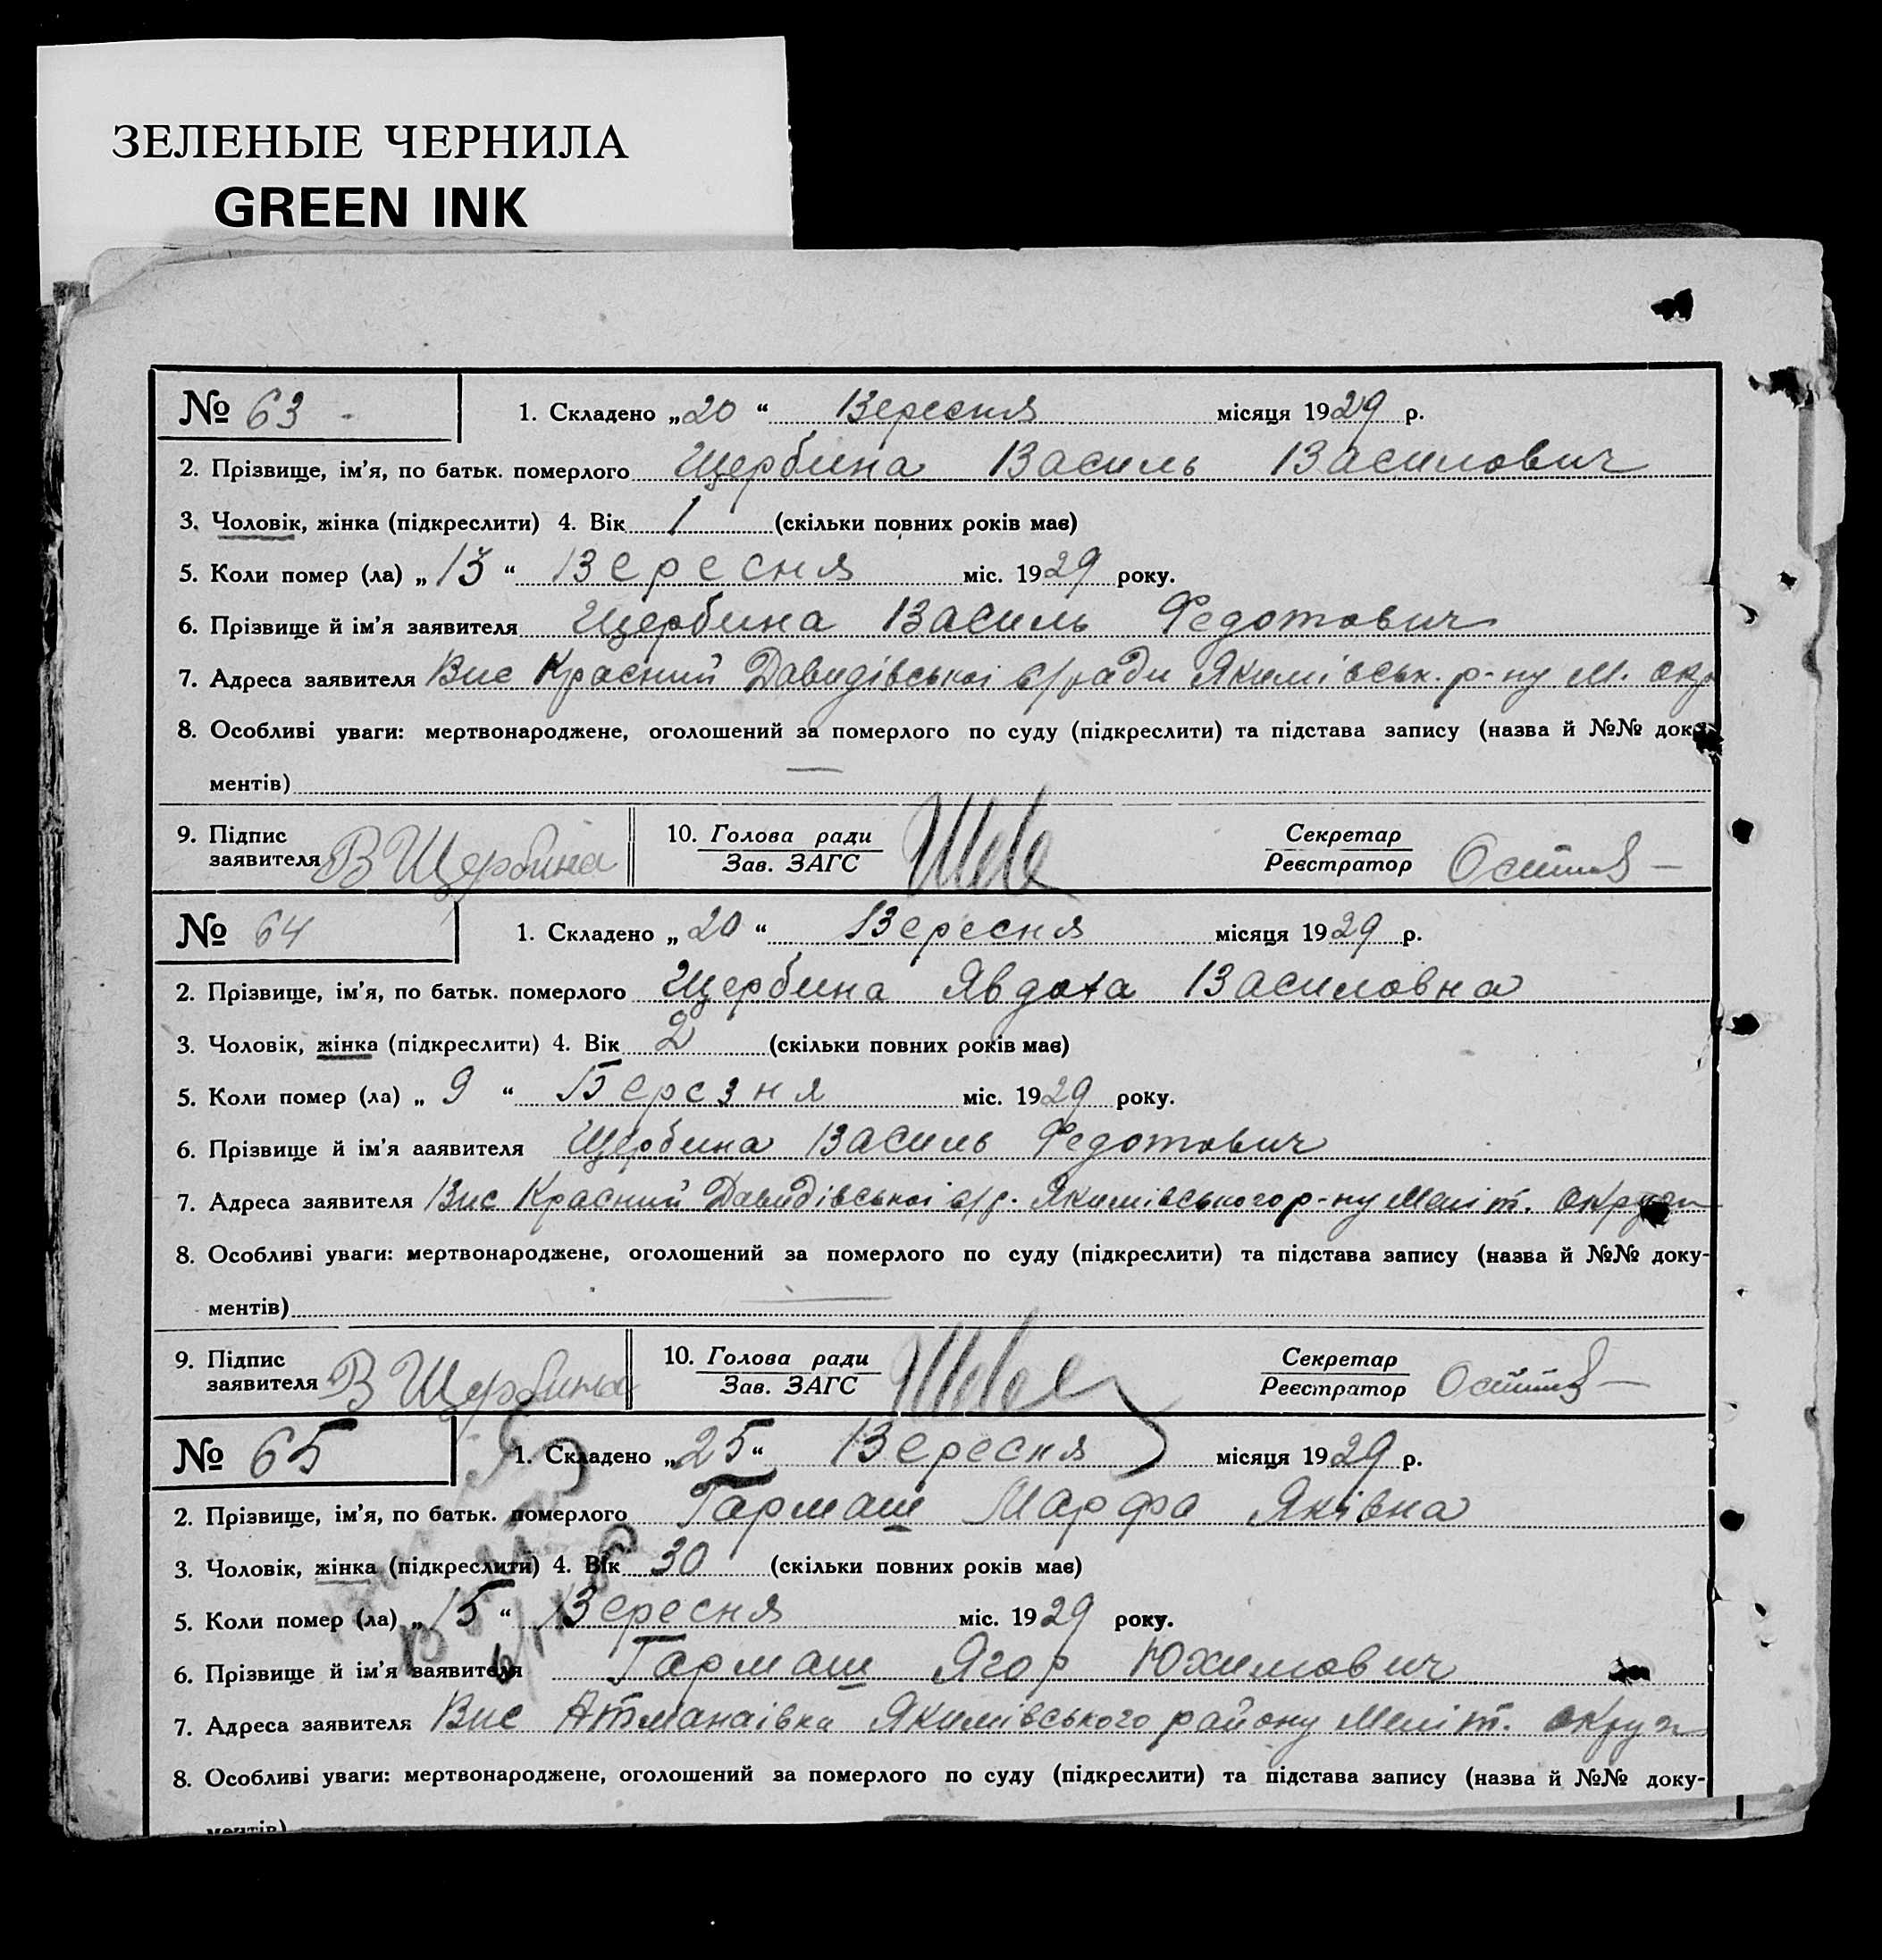 ЗЕЛЕНЫЕ ЧЕРНИЛА
GREEN INK
№ 63 1. Складено „20“ Вересня місяця 1929 р.
2. Прізвище, ім'я, по батьк. померлого Щербина Василь Василович
3. Чоловік, жінка (підкреслити) 4. Вік 1 (скільки повних років має)
5. Коли помер (ла) „13“ Вересня міс. 1929 року.
6. Прізвище й ім'я заявителя Щербина Василь Федотович
7. Адреса заявителя Вис Красний Давидівської с/ради Якимівськ. р-ну М. окр
8. Особливі уваги: мертвонароджене, оголошений за померлого по суду (підкреслити) та підстава запису (назва й №№ доку-
ментів) —
9. Підпис заявителя В Щербина 10. Голова ради Зав. ЗАГС Секретар Реєстратор
№ 64 1. Складено „20“ Вересня місяця 1929 р.
2. Прізвище, ім'я, по батьк. померлого Щербина Явдоха Василовна
3. Чоловік, жінка (підкреслити) 4. Вік 2 (скільки повних років має)
5. Коли помер (ла) „9“ Березня міс. 1929 року.
6. Прізвище й ім'я ааявителя Щербина Василь Федотович
7. Адреса заявителя Вис Красний Давидівської с/р. Якимівського р-ну Меліт. округи
8. Особливі уваги: мертвонароджене, оголошений за померлого по суду (підкреслити) та підстава запису (назва й №№ доку-
ментів) —
9. Підпис заявителя В Щербина 10. Голова ради Зав. ЗАГС Секретар Реєстратор
№ 65 1. Складено „25“ Вересня місяця 1929 р.
2. Прізвище, ім'я, по батьк. померлого Гармаш Марфа Яківна
3. Чоловік, жінка (підкреслити) 4. Вік 30 (скільки повних років має)
5. Коли помер (ла) „15“ Вересня міс. 1929 року.
6. Прізвище й ім'я заявителя Гармаш Ягор Юхимович
7. Адреса заявителя Вис Атманаівка Якимівського району Меліт. округи
8. Особливі уваги: мертвонароджене, оголошений за померлого по суду (підкреслити) та підстава запису (назва й №№ доку-
ментів)